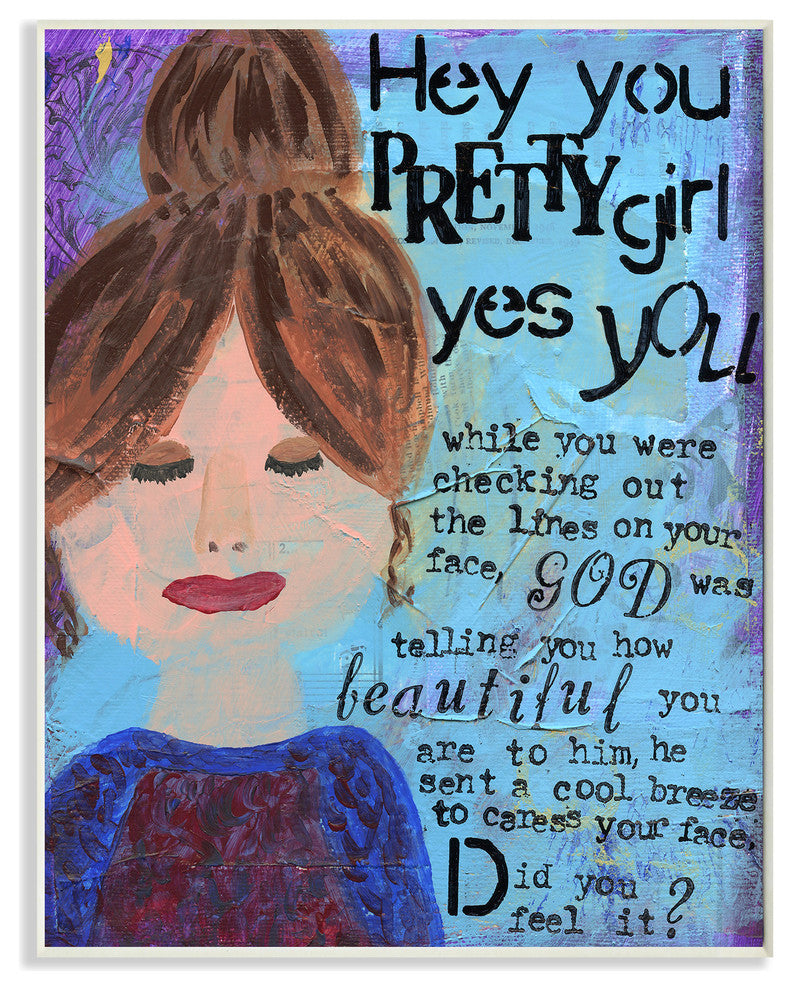 Hey you
PRETTY girl
yes you
while you were
checking out
the lines on your
face, GOD was
telling you how
beautiful you
are to him, he
sent a cool breeze
to caress your face.
Did you
feel it?